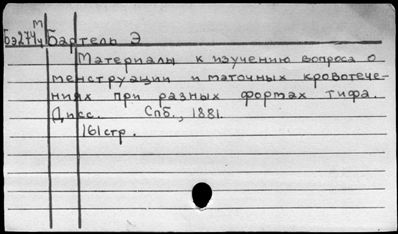 Бэ274 м/ч Бартель Э
Материалы к изучению вопроса о
менструации и маточных кровотече-
ниях при разных формах тифа.
Дисс. Спб., 1881.
161 стр.